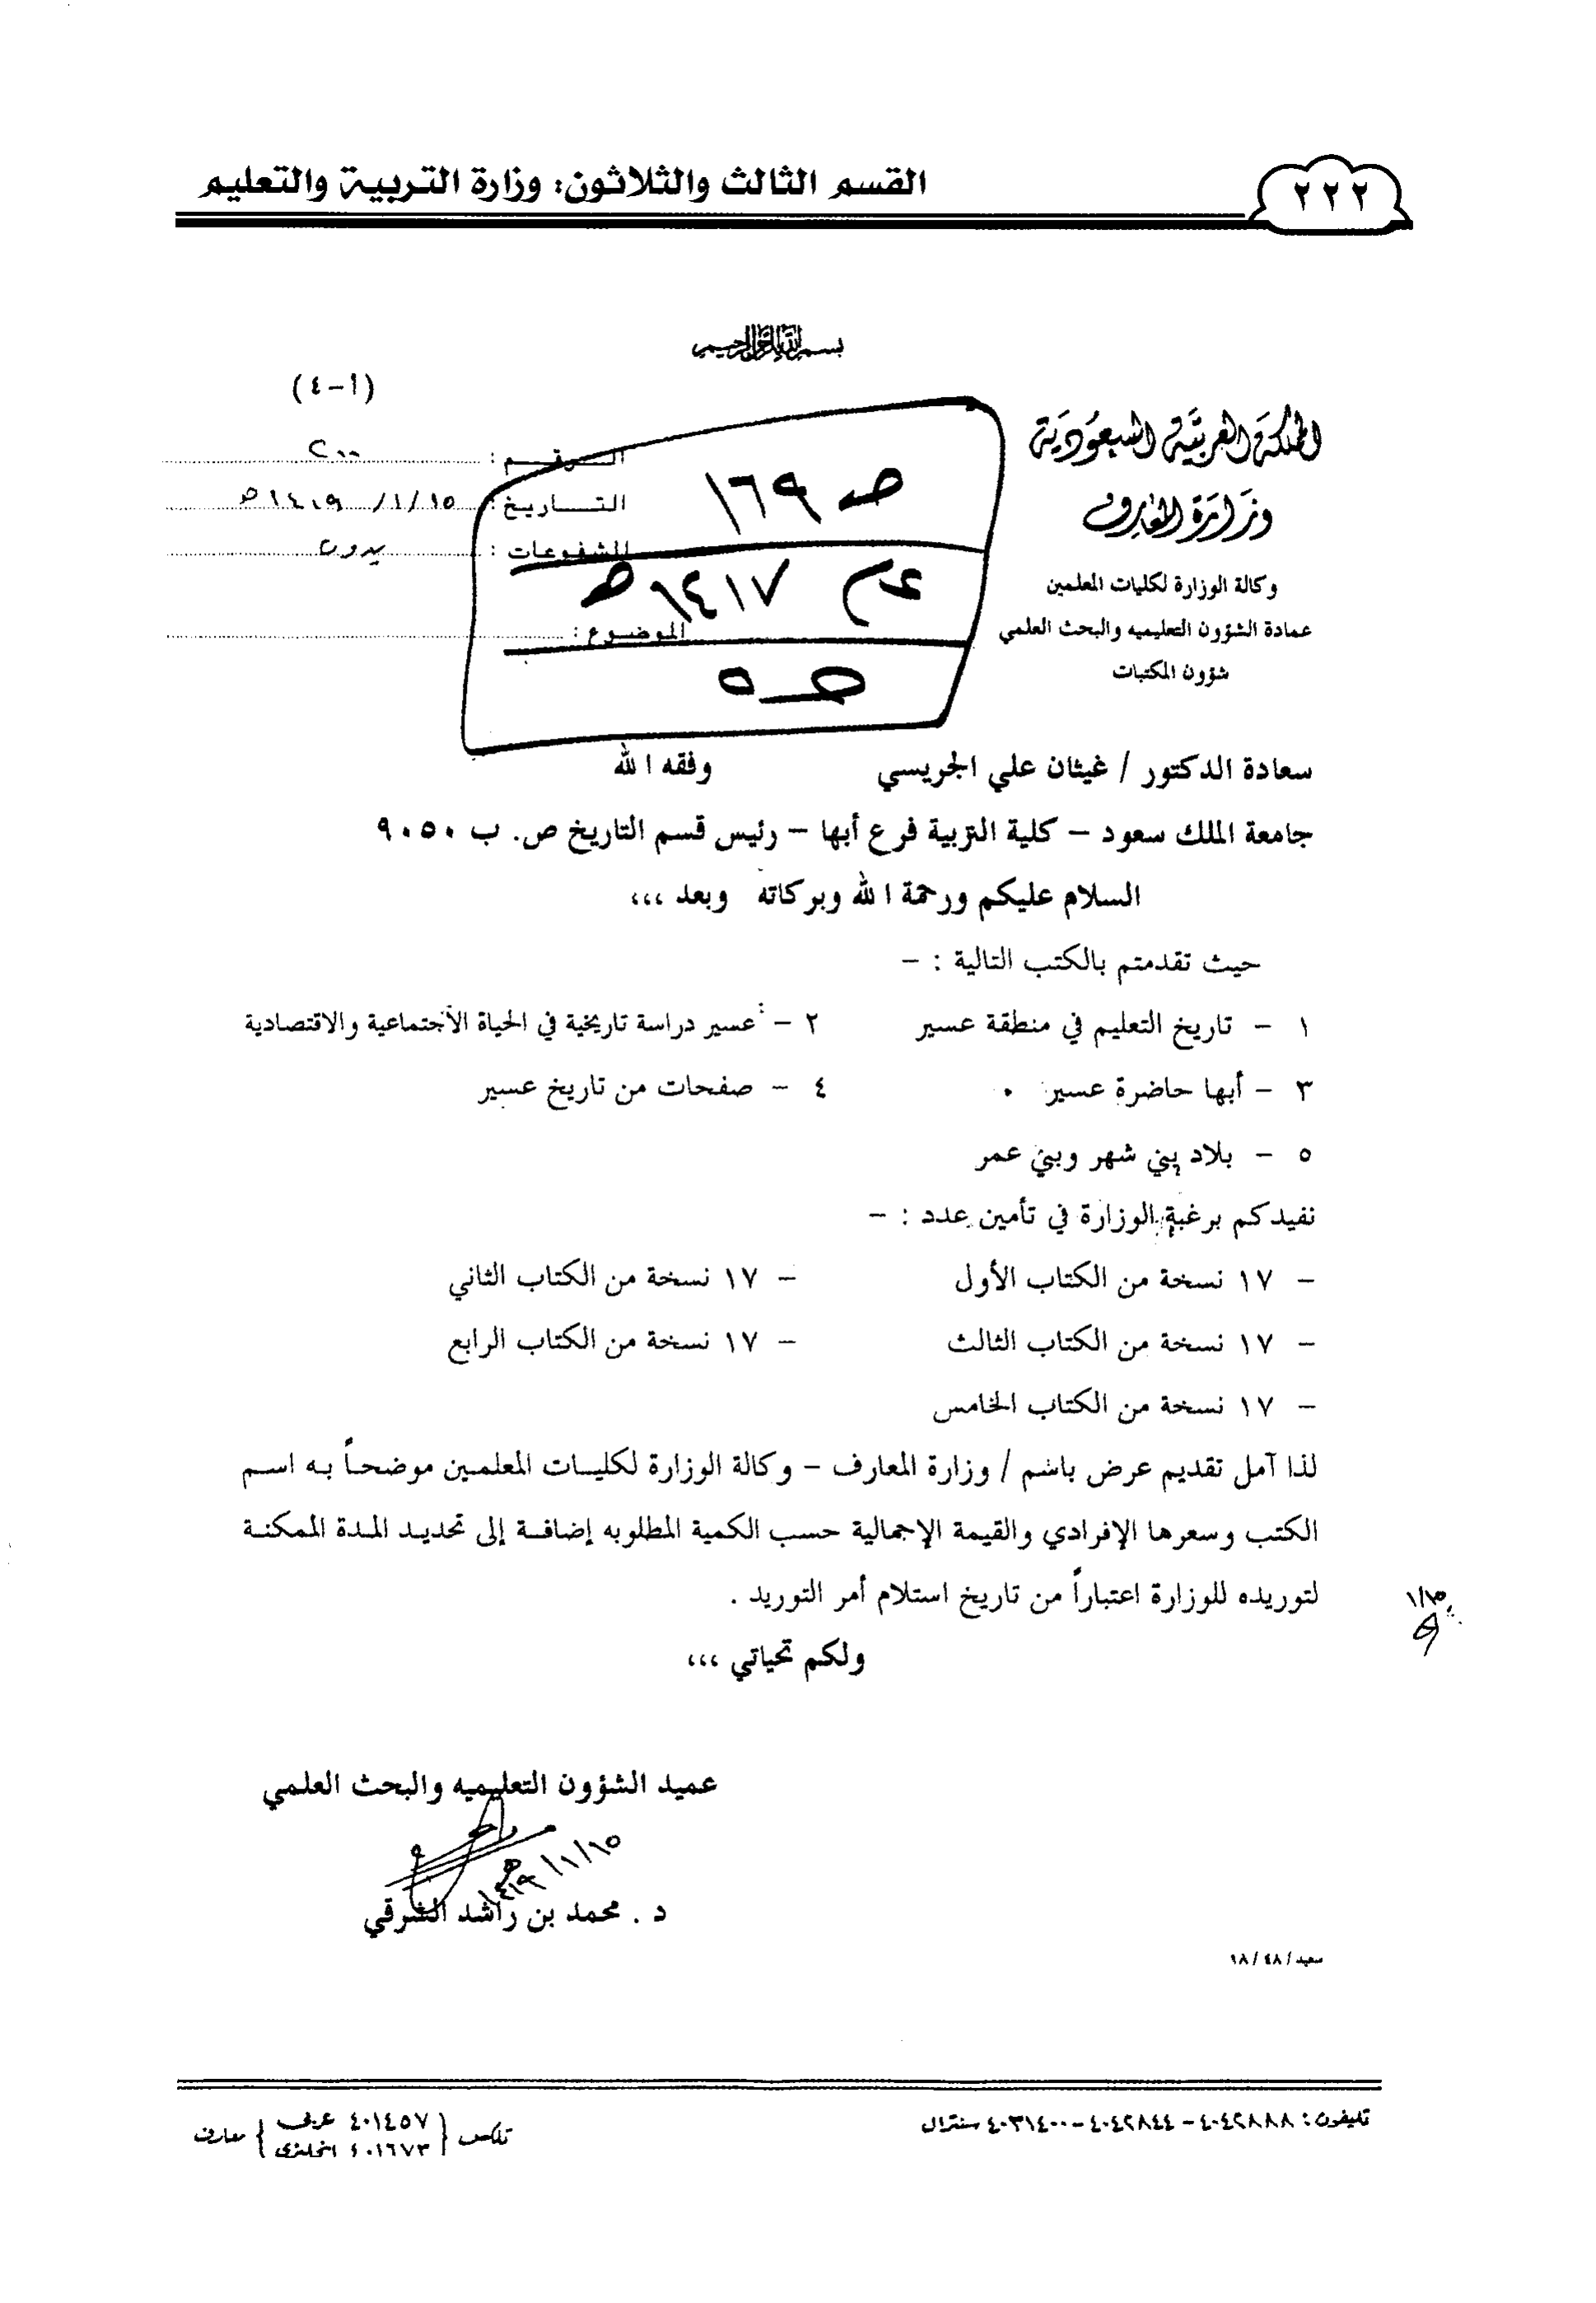 ٢٢٢
القسم الثالث والثلاثون: وزارة التربية والتعليم
بسم الله الرحمن الرحيم
(أ-٤)
المملكة العربية السعودية
وزارة المعارف
وكالة الوزارة لكليات المعلمين
عمادة الشؤون التعليميه والبحث العلمي
شؤون المكتبات
الـرقـم :
التـاريخ : ١٥/ ١/
المشفوعات : بدون
الموضوع :
ص ١٦٩
عام ١٤١٧ هـ
ص ٥
سعادة الدكتور / غيثان علي الجريسي وفقه الله
جامعة الملك سعود - كلية التربية فرع أبها - رئيس قسم التاريخ ص. ب ٩٠٥٠
السلام عليكم ورحمة الله وبركاته وبعد ،،،
حيث تقدمتم بالكتب التالية : -
١ - تاريخ التعليم في منطقة عسير ٢ - عسير دراسة تاريخية في الحياة الاجتماعية والاقتصادية
٣ - أبها حاضرة عسير ٤ - صفحات من تاريخ عسير
٥ - بلاد بني شهر وبني عمر
نفيدكم برغبة الوزارة في تأمين عدد : -
- ١٧ نسخة من الكتاب الأول - ١٧ نسخة من الكتاب الثاني
- ١٧ نسخة من الكتاب الثالث - ١٧ نسخة من الكتاب الرابع
- ١٧ نسخة من الكتاب الخامس
لذا آمل تقديم عرض باسم / وزارة المعارف - وكالة الوزارة لكليات المعلمين موضحاً به اسم
الكتب وسعرها الإفرادي والقيمة الإجمالية حسب الكمية المطلوبه إضافة إلى تحديد المدة الممكنة
لتوريده للوزارة اعتباراً من تاريخ استلام أمر التوريد .
١/١٥
ولكم تحياتي ،،،
عميد الشؤون التعليميه والبحث العلمي
١٥/ ١/ ١٤١٩ هـ
د . محمد بن راشد الشرقي
سعيد/١٨/٤٨
تليفون : ٤٠٤٢٨٨٨ - ٤٠٤٢٨٤٤ - ٤٠٣١٤٠٠ سنترال
تلكس { ٤٠١٤٥٧ عربي } معارف
٤٠١٦٧٣ انجليزي